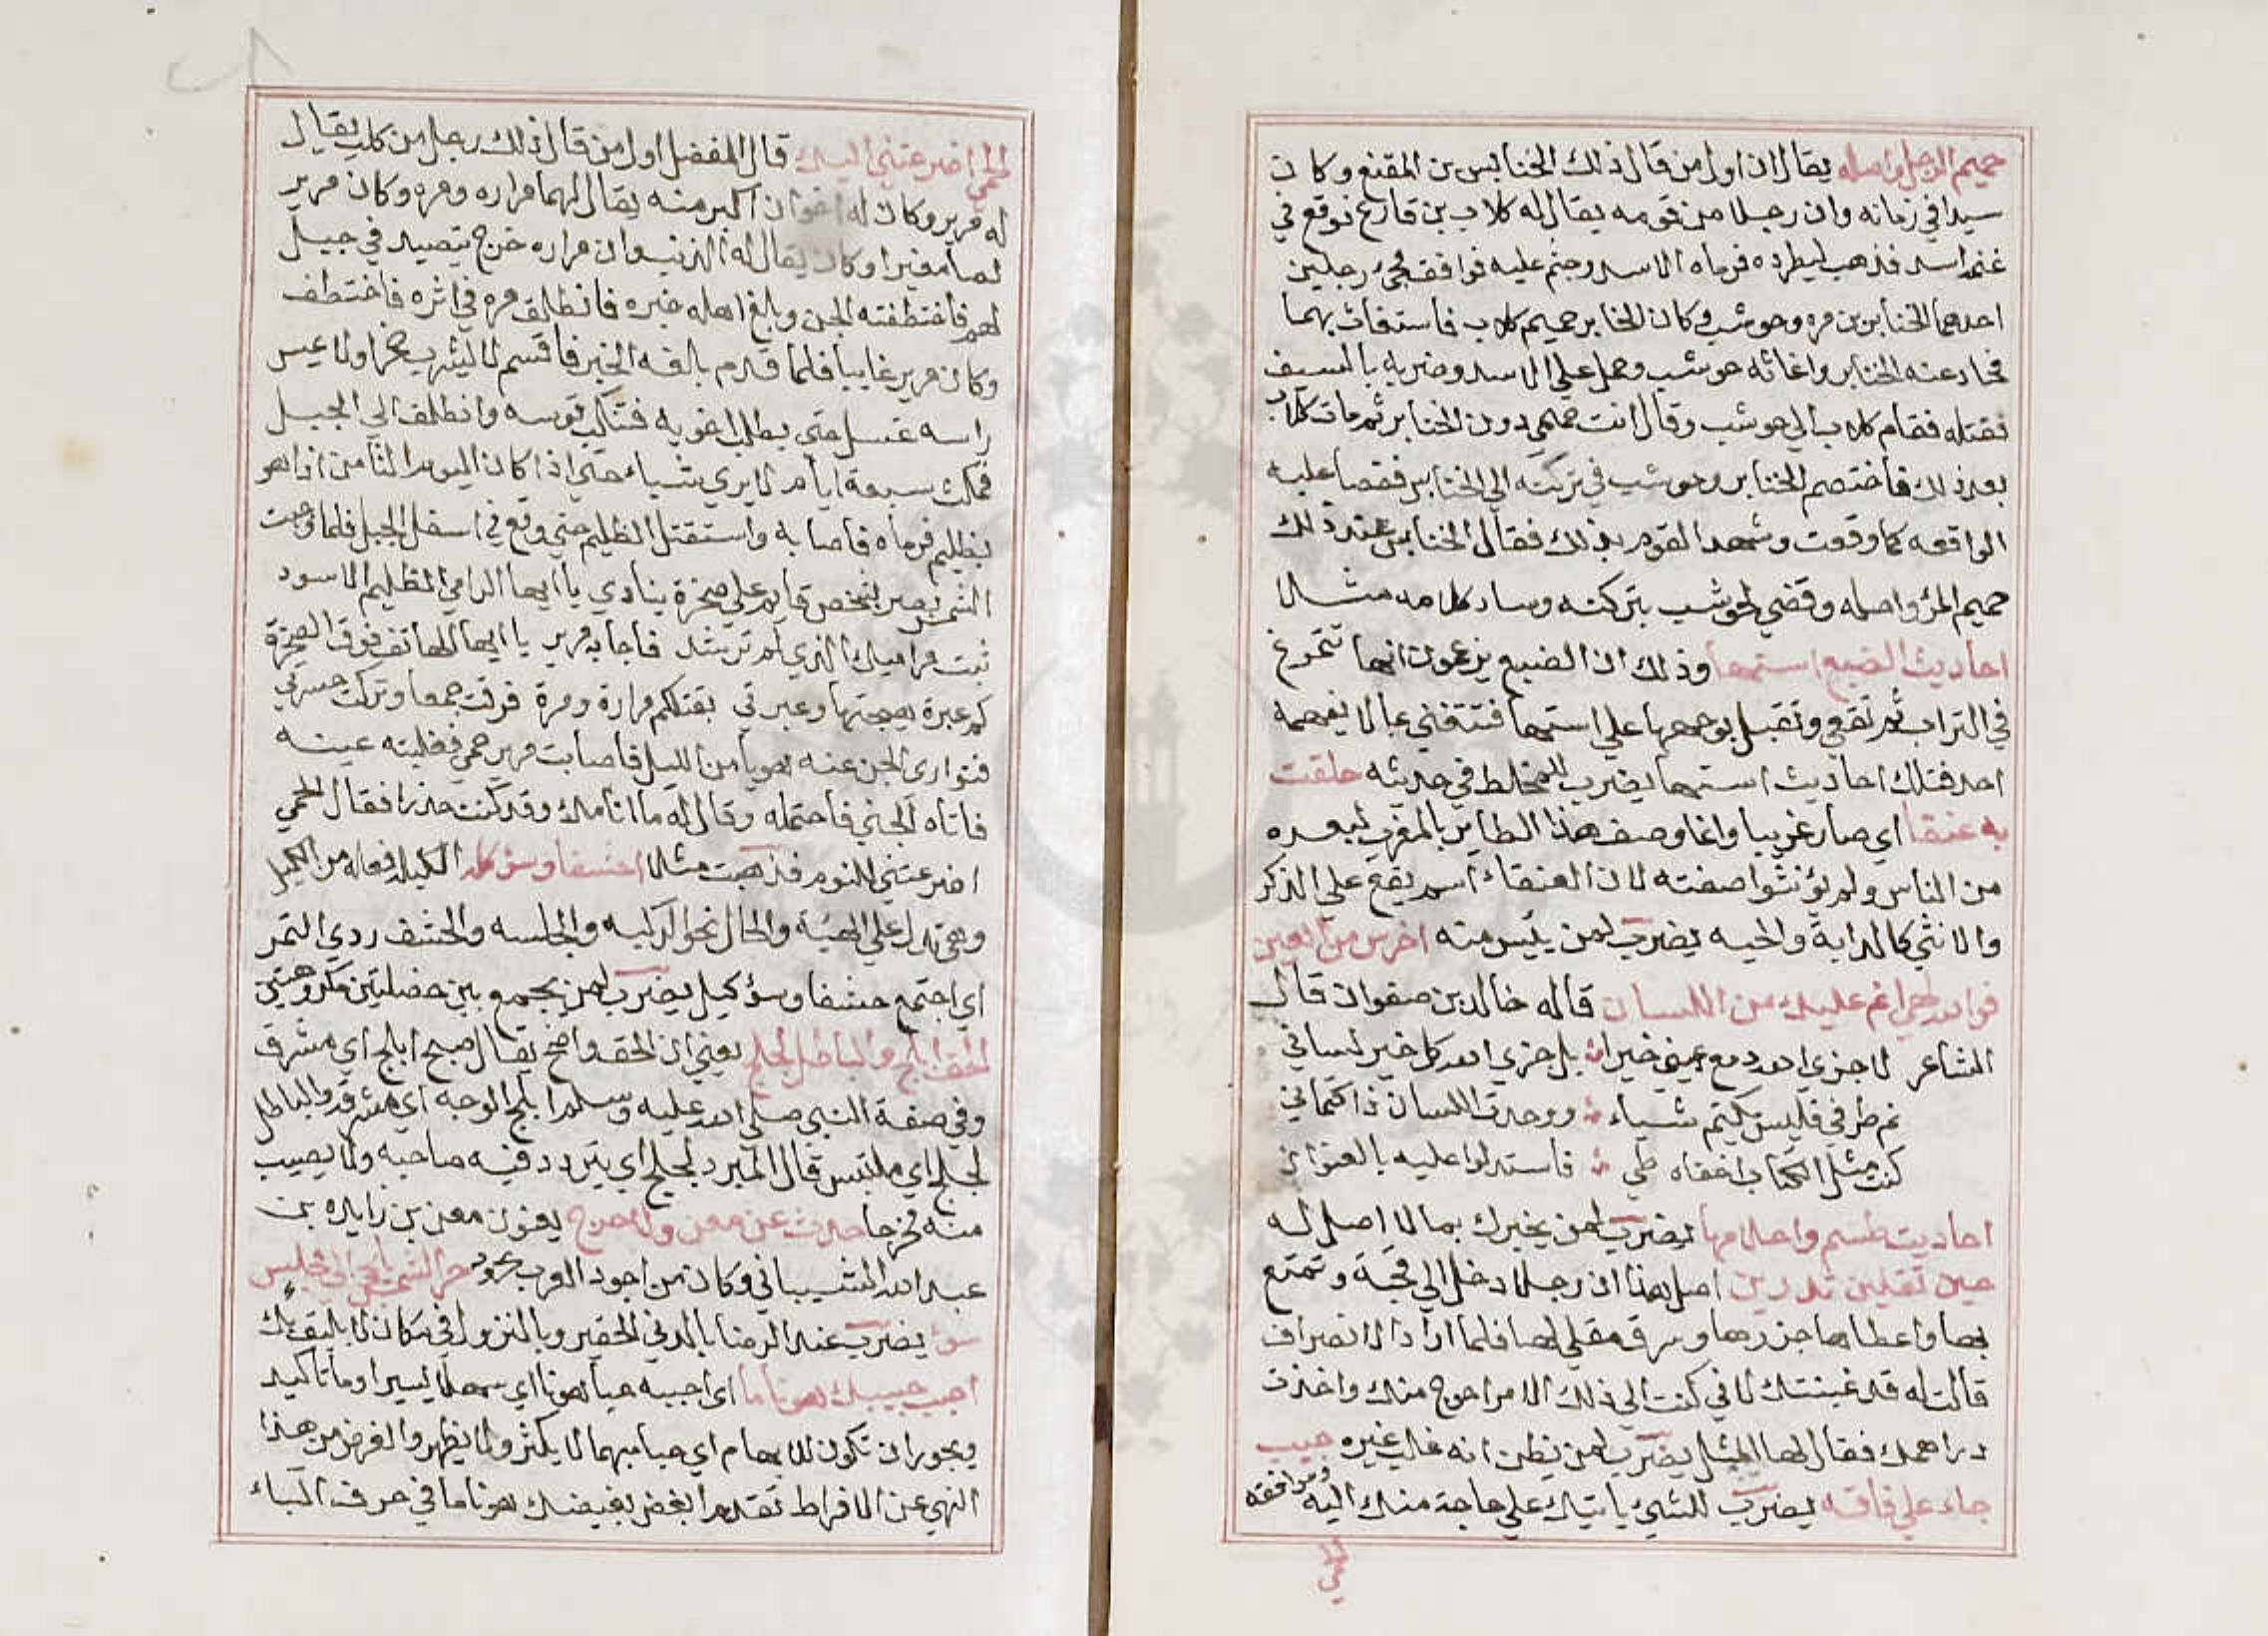 حميم الرجل واصله يقال ان اول من قال ذلك الخنابس بن المقنع وكان
سيدا في زمانه وان رجلا من قومه يقال له كلاب بن قارع فوقع في
غنمه اسد فذهب ليطرده فرماه الاسد وجثم عليه فوافقه رجلين
احدهما الخنابر بن مره وحوشب وكان الخنابر حميم كلاب فاستغاث بهما
فحاد عنه الخنابر واغاثه حوشب وحمل علي الاسد وضربه بالسيف
فقتله فقام كلاب الي حوشب وقال انت حميمي دون الخنابر ثم مات كلاب
بعد ذلك فاختصم الخنابر وحوشب في تركته الي الخنابس فقصا عليه
الواقعه كما وقعت وشهد القوم بذلك فقال الخنابس عند ذلك
حميم المرؤ واصله وقضي لحوشب بتركته وسار كلامه مثالا
احاديث الضبع استها وذلك ان الضبع يزعمون انها تتمرغ
في التراب ثم تقعي وتقبل بوجهها علي استها فتتغني بما لا يفهمه
احد فتلك احاديث استها يضرب للمخلط في حديثه حلقت
به عنقا اي صار غريبا وانما وصف هذا الطاير بالمغرب لبعده
من الناس ولم يؤنثوا صفته لان العنقاء اسم يقع علي الذكر
والانثي كالدابة والحيه يضرب لمن يئيس منه اخرس من العين
فوالله لهي انم عليك من اللسان قاله خالد بن صفوان قال
الشاعر لا جزي الله دمع عيني خيرا بل جزي الله كل خير لساني
نم طرفي فليس يكتم شياء ووجدت اللسان ذا كتماني
كنت مثل الكتاب اخفاه طي فاستدلوا عليه بالعنواني
احاديث طسم واحلامها يضرب لمن يخبرك بما لا اصل له
حين تقلين تدرين اصل هذا ان رجلا دخل الي قحبة وتمتع
بها واعطاها جذرها وسرق مقلي لها فلما اراد الانصراف
قالت له قد غبنتك لاني كنت الي ذلك الامر احوج منك واخذت
دراهمك فقال لها المثل يضرب لمن يظن انه غالب غيره حبيب
جاء علي فاقه يضرب للشيئ ياتيك علي حاجة منك اليه وموافقه
الحمي اضرعتني اليك قال المفضل اول من قال ذلك رجل من كلب يقال
له مرير وكان له اخوان اكبر منه يقال لهما مراره ومره وكان مرير
لصا مغيرا وكان يقال له الذئب وان مراره خرج يتصيد في جبل
لهم فاختطفته الجن وبلغ اهله خبره فانطلق مره في اثره فاختطف
وكان مرير غايبا فلما قدم بلغه الخبر فاقسم لا يشرب خمرا ولا يمس
راسه غسل حتي يطلب اخويه فتنكب قوسه وانطلق الي الجبل
فمكث سبعة ايام لا يري شياء حتي اذا كان اليوم الثامن اذا هو
بظليم فرماه فاصابه واستقتل الظليم حتي وقع في اسفل الجبل فلما وجبت
الشمس بصر بشخص قايم علي صخرة ينادي يا ايها الرامي الظليم الاسود
تبت مراميك الذي لم ترشد فاجابه مرير يا ايها الهاتف فوق الصخرة
كم عبرة هيجتها وعبرتي بقتلكم مرارة ومرة فرقت جمعا وتركت حسرتي
فتواري الجن عنه هويا من الليل فاصابت مرير حمي فغلبته عينه
فاتاه الجني فاحتمله وقال له ما انامك وقد كنت حذرا فقال الحمي
اضرعتني للنوم فذهبت مثلا احشفا وسؤ كله الكيله فعله من الكيل
وهي تدل علي الهيئة والحال نحو الركبه والجلسه والحشف ردي التمر
اي اجتمع حشفا وسؤ كيل يضرب لمن يجمع بين خصلتين مكروهتين
الحق ابلج والباطل لجلج يعني ان الحق واضح يقال صبح ابلج اي مشرق
وفي صفة النبي صلي الله عليه وسلم ابلج الوجه اي مشرقه والباطل
لجلج اي ملتبس قال المبرد لجلج اي يتردد فيه صاحبه ولا يصيب
منه مخرجا حدث عن معن ولا حرج يعنون معن بن زايده بن
عبد الله الشيباني وكان من اجود العرب حر الشمس يلجي الي مجلس
سؤ يضرب عند الرضا بالدني الحقير وبالنزول في مكان لا يليق بك
احبب حبيبك هونا ما اي احببه حبا هونا اي سهلا يسيرا وما تاكيد
ويجوز ان تكون للابهام اي حبا مبهما لا يكثر ولا يظهر والغرض من هذا
النهي عن الافراط تقدم ابغض بغيضك هونا ما في حرف الباء